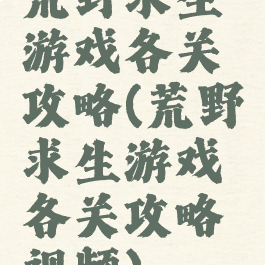 荒野求生
游戏各关
攻略(荒野
求生游戏
各关攻略
视频)